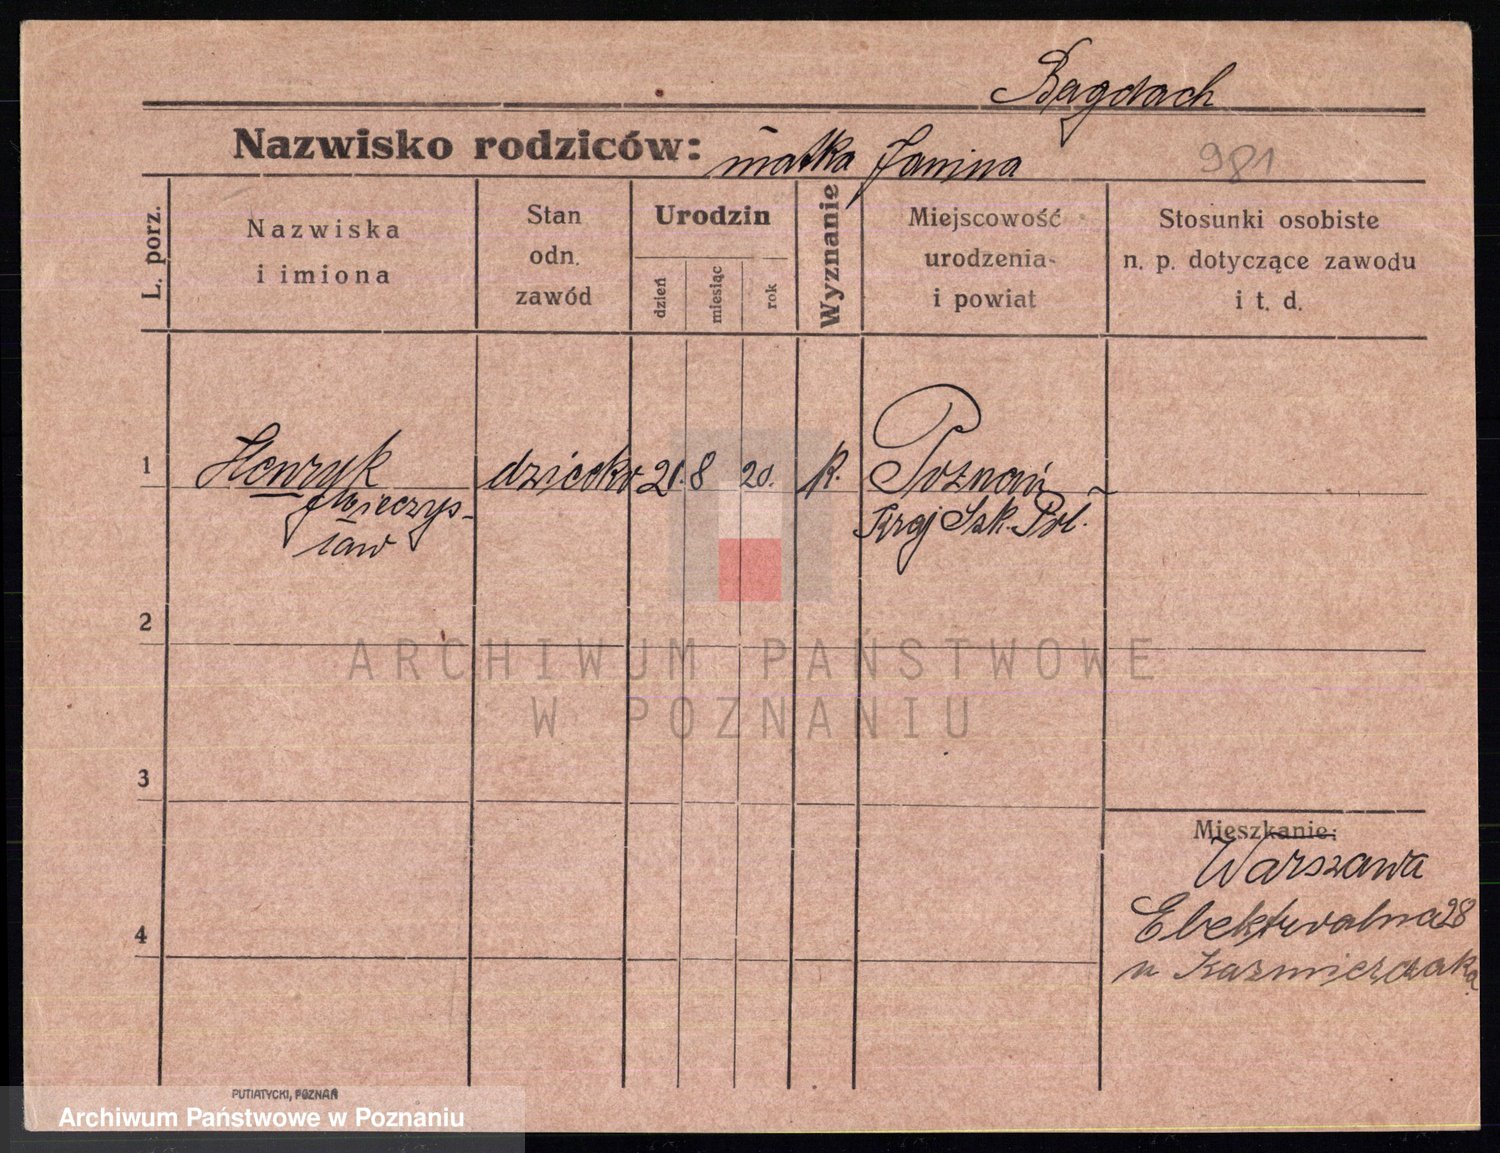 Bagdach
Nazwisko rodziców: matka Janina 981
L. porz.
Nazwiska
i imiona
Stan
odn.
zawód
Urodzin
dzień
miesiąc
rok
Wyznanie
Miejscowość
urodzenia
i powiat
Stosunki osobiste
n. p. dotyczące zawodu
i t. d.
1 Henryk dziecko 21. 8 20. k. Poznań
Mieczys-
ław
Kraj Szk. Poł.
2
3
4
Mieszkanie:
Warszawa
Elektoralna 28
u Kaźmierczaka
PUTIATYCKI, POZNAŃ
ARCHIWUM PAŃSTWOWE
W POZNANIU
Archiwum Państwowe w Poznaniu